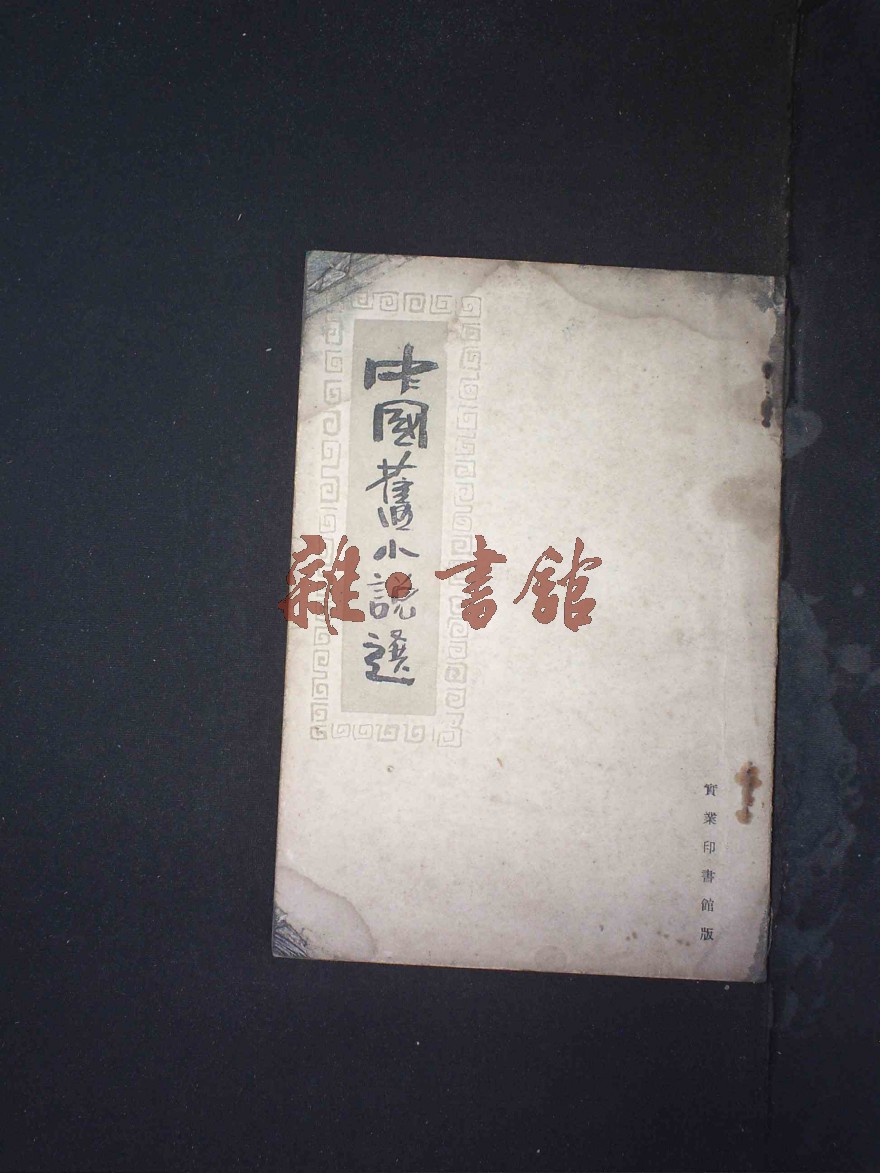 中國舊小說選
雜·書館
實業印書館版